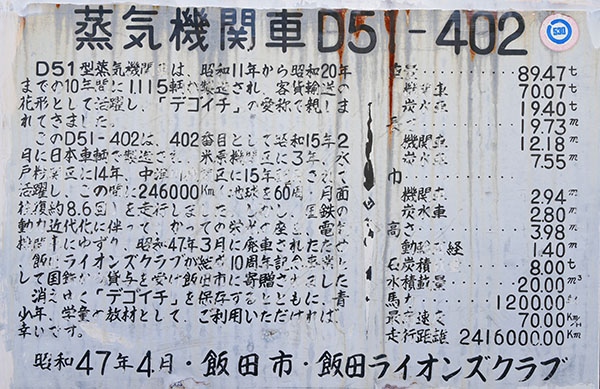 蒸気機関車D51-402
530
D51型蒸気機関車は、昭和11年から昭和20年
までの10年間に1115輌が製造され、客貨輸送の
花形として活躍し、「デコイチ」の愛称で親しま
れてきました。
このD51-402は、402番目として昭和15年2
月に日本車輌で製造され、米原機関区に3年、水
戸 機関区に14年、中津川機関区に15年 
活躍し、この間に246000Km 地球を60周・月面
往復約8.6回)を走行しました。しかし、国鉄の
動力近代化に伴って、かつての栄光の座を電
機関車にゆずり、昭和47年3月に廃車されたため
飯田ライオンズクラブが結成10周年記念事業と
して国鉄から貸与を受け飯田市に寄贈されました
消えゆく「デコイチ」を保存するとともに、青
少年、学童の教材として、ご利用いただければ
幸いです。
重量 89.47t
機関車 70.07t
炭水車 19.40t
長さ 19.73m
機関車 12.18m
炭水車 7.55m
巾
機関車 2.94m
炭水車 2.80m
高さ 3.98m
動輪 径 1.40m
石炭積 8.00t
水積載量 20.00m³
馬力 1200.00
最高速さ 70.00Km/H
走行距離 2416000.00Km
昭和47年4月・飯田市・飯田ライオンズクラブ